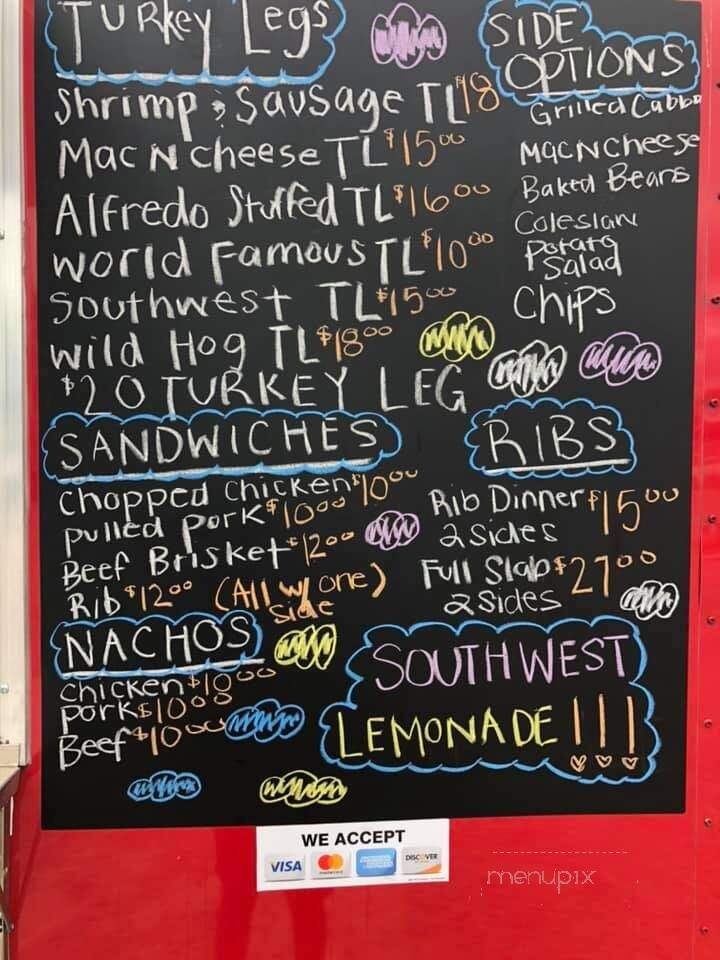 TURKey Legs
Shrimp & Sausage TL $18
Mac N cheese TL $15.00
Alfredo Stuffed TL $16.00
World Famous TL $10.00
Southwest TL $15.00
wild Hog TL $18.00
$20 TURKEY LEG
SIDE
OPTIONS
Grilled Cabba
Mac N Cheese
Baked Beans
Coleslaw
Potato
Salad
Chips
SANDWICHES
Chopped Chicken $10.00
pulled pork $10.00
Beef Brisket $12.00
Rib $12.00 (All w/ one)
Side
RIBS
Rib Dinner $15.00
2 sides
Full Slab $27.00
2 Sides
NACHOS
Chicken $10.00
pork $10.00
Beef $10.00
SOUTHWEST
LEMONADE !!!
WE ACCEPT
VISA
DISCOVER
menupix